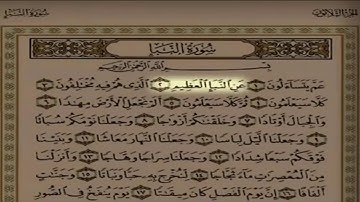 الجزء الثلاثون سورة النبأ
سورة النبإ
بسم الله الرحمن الرحيم
عم يتساءلون ١ عن النبإ العظيم ٢ الذي هم فيه مختلفون ٣
كلا سيعلمون ٤ ثم كلا سيعلمون ٥ ألم نجعل الأرض مهادا ٦
والجبال أوتادا ٧ وخلقناكم أزواجا ٨ وجعلنا نومكم سباتا
٩ وجعلنا الليل لباسا ١٠ وجعلنا النهار معاشا ١١ وبنينا
فوقكم سبعا شدادا ١٢ وجعلنا سراجا وهاجا ١٣ وأنزلنا
من المعصرات ماء ثجاجا ١٤ لنخرج به حبا ونباتا ١٥ وجنات
ألفافا ١٦ إن يوم الفصل كان ميقاتا ١٧ يوم ينفخ في الصور